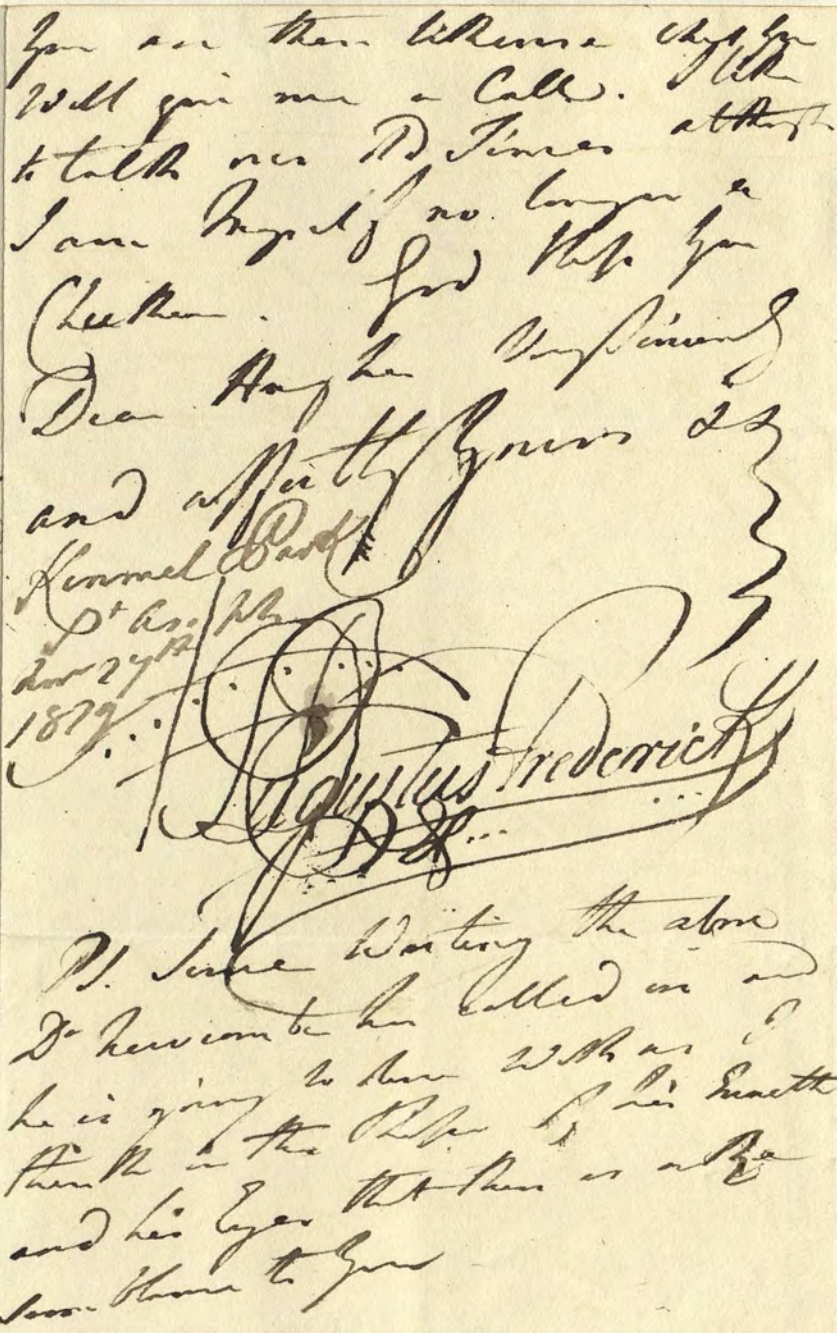 You are then likewise that you
will give me a Call. I like
to talk over Old Times although
I am Myself no longer a
Chicken. God bless you
Dear Hughes Very Sincerely
and affectly Yours &&
Kinmel Park
St Asaph
27th
1829
Augustus Frederick
PS. Since Writing the above
Dr has called in and
he is going to dine With us I
think in the Shape of his Mouth
and his Eyes that there is a Re
semblance to You